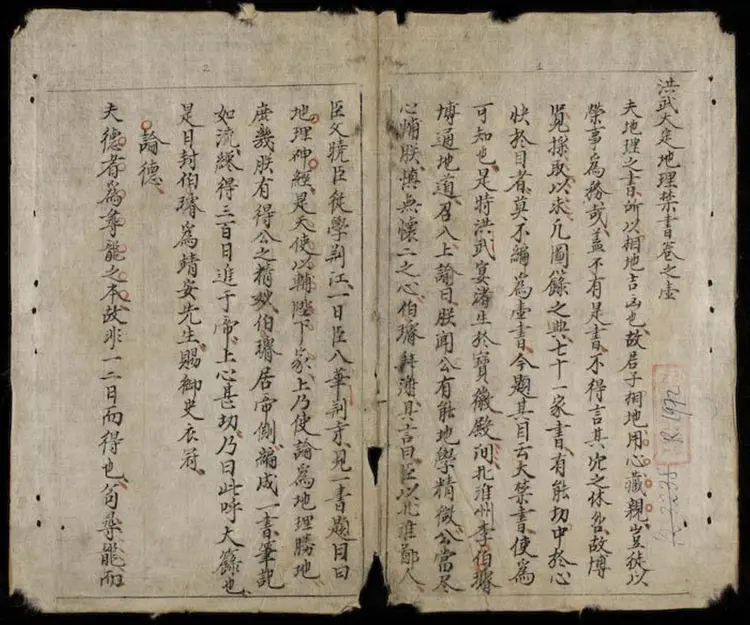 1
洪武大定地理禁書卷之壹
夫地理之書所以相地吉凶也故君子相地用心藏親豈徒以
榮事為務哉盖不有是書不得言其穴之休咎故博
覽採取以求凡圖籙之典七十一家書有能切中於心
快於目者莫不編為壹書今題其目云大禁書使為
可知也是時洪武宴諸生於寶徽殿问北淮州李伯璿
博通地道召入上諭曰朕聞公有能地學精微公當尽
心輔朕慎無懷二之心伯璿拜謝具言曰臣以北淮鄙人
2
臣文曉臣從學荆江一日臣入華荆京見一書題目曰
地理神經是天使以輔陛下家上乃使論為地理勝地
庶幾朕有得公之精妙伯璿居帝側編成一書筆記
如流纔得三百日進于帝上心甚切乃曰此呼大籙也
是日封伯璿為靖安先生賜御史衣冠
論德
夫德者為尋龍之本故非一二日而得也自尋龍而
R.1992